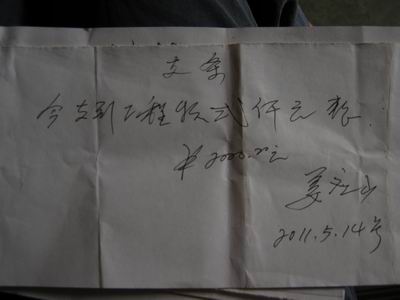 支条
今支到工程款弍仟元整.
¥2000.00元
姜
2011.5.14号